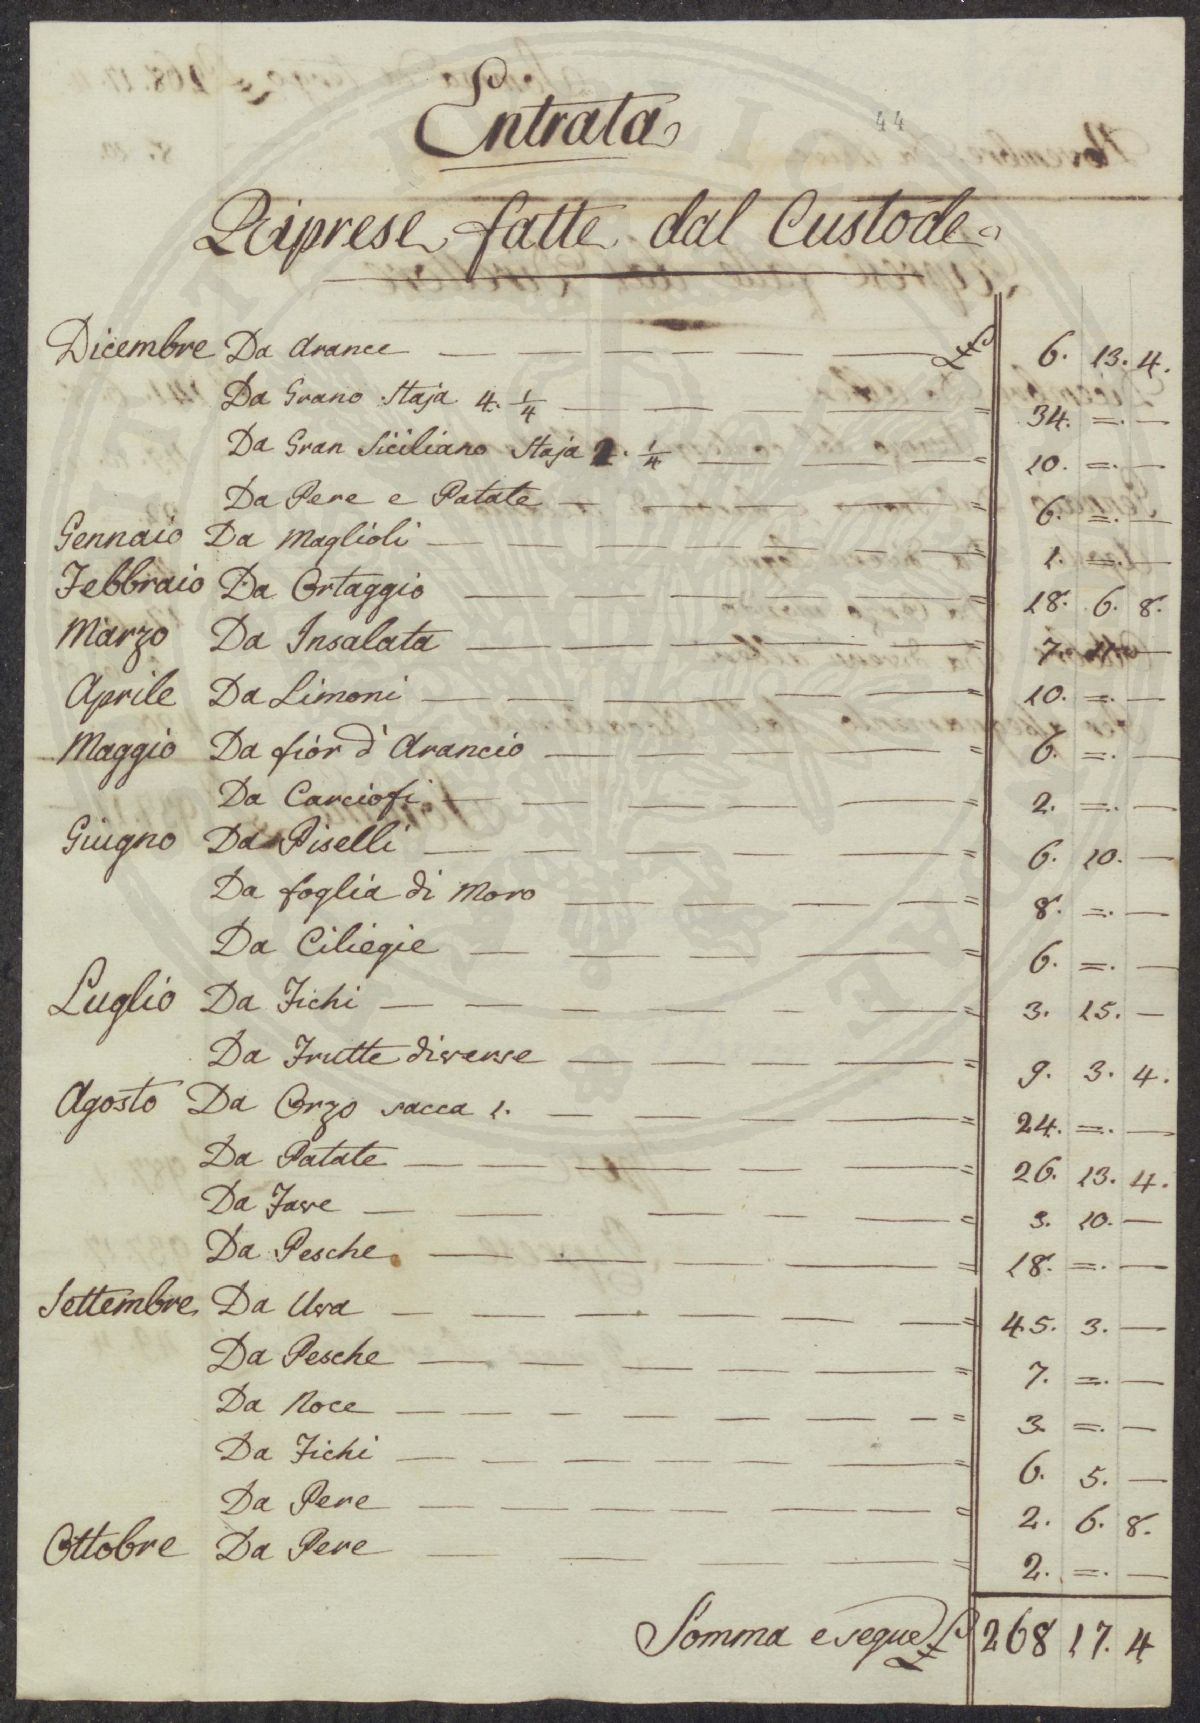 44
Entrata
Riprese fatte dal Custode
Dicembre Da Arance £ 6. 13. 4.
Da Grano Staja 4. 1/4 = 34. =. —
Da Gran Siciliano Staja 2. 1/4 = 10. =. —
Da Pere e Patate = 6. =. —
Gennaio Da Maglioli = 1. =. —
Febbraio Da Ortaggio = 18. 6. 8.
Marzo Da Insalata = 7. —
Aprile Da Limoni = 10. =. —
Maggio Da fior d'Arancio = 6. =. —
Da Carciofi = 2. =. —
Giugno Da Piselli = 6. 10. —
Da foglia di Moro = 8. =. —
Da Ciliegie = 6. =. —
Luglio Da Fichi = 3. 15. —
Da Frutte diverse = 9. 3. 4.
Agosto Da Orzo sacca 1. = 24. =. —
Da Patate = 26. 13. 4.
Da Fave = 3. 10. —
Da Pesche = 18. =. —
Settembre Da Uva = 45. 3. —
Da Pesche = 7. =. —
Da Noce = 3. =. —
Da Fichi = 6. 5. —
Da Pere = 2. 6. 8.
Ottobre Da Pere = 2. =. —
Somma e segue £ 268 17. 4